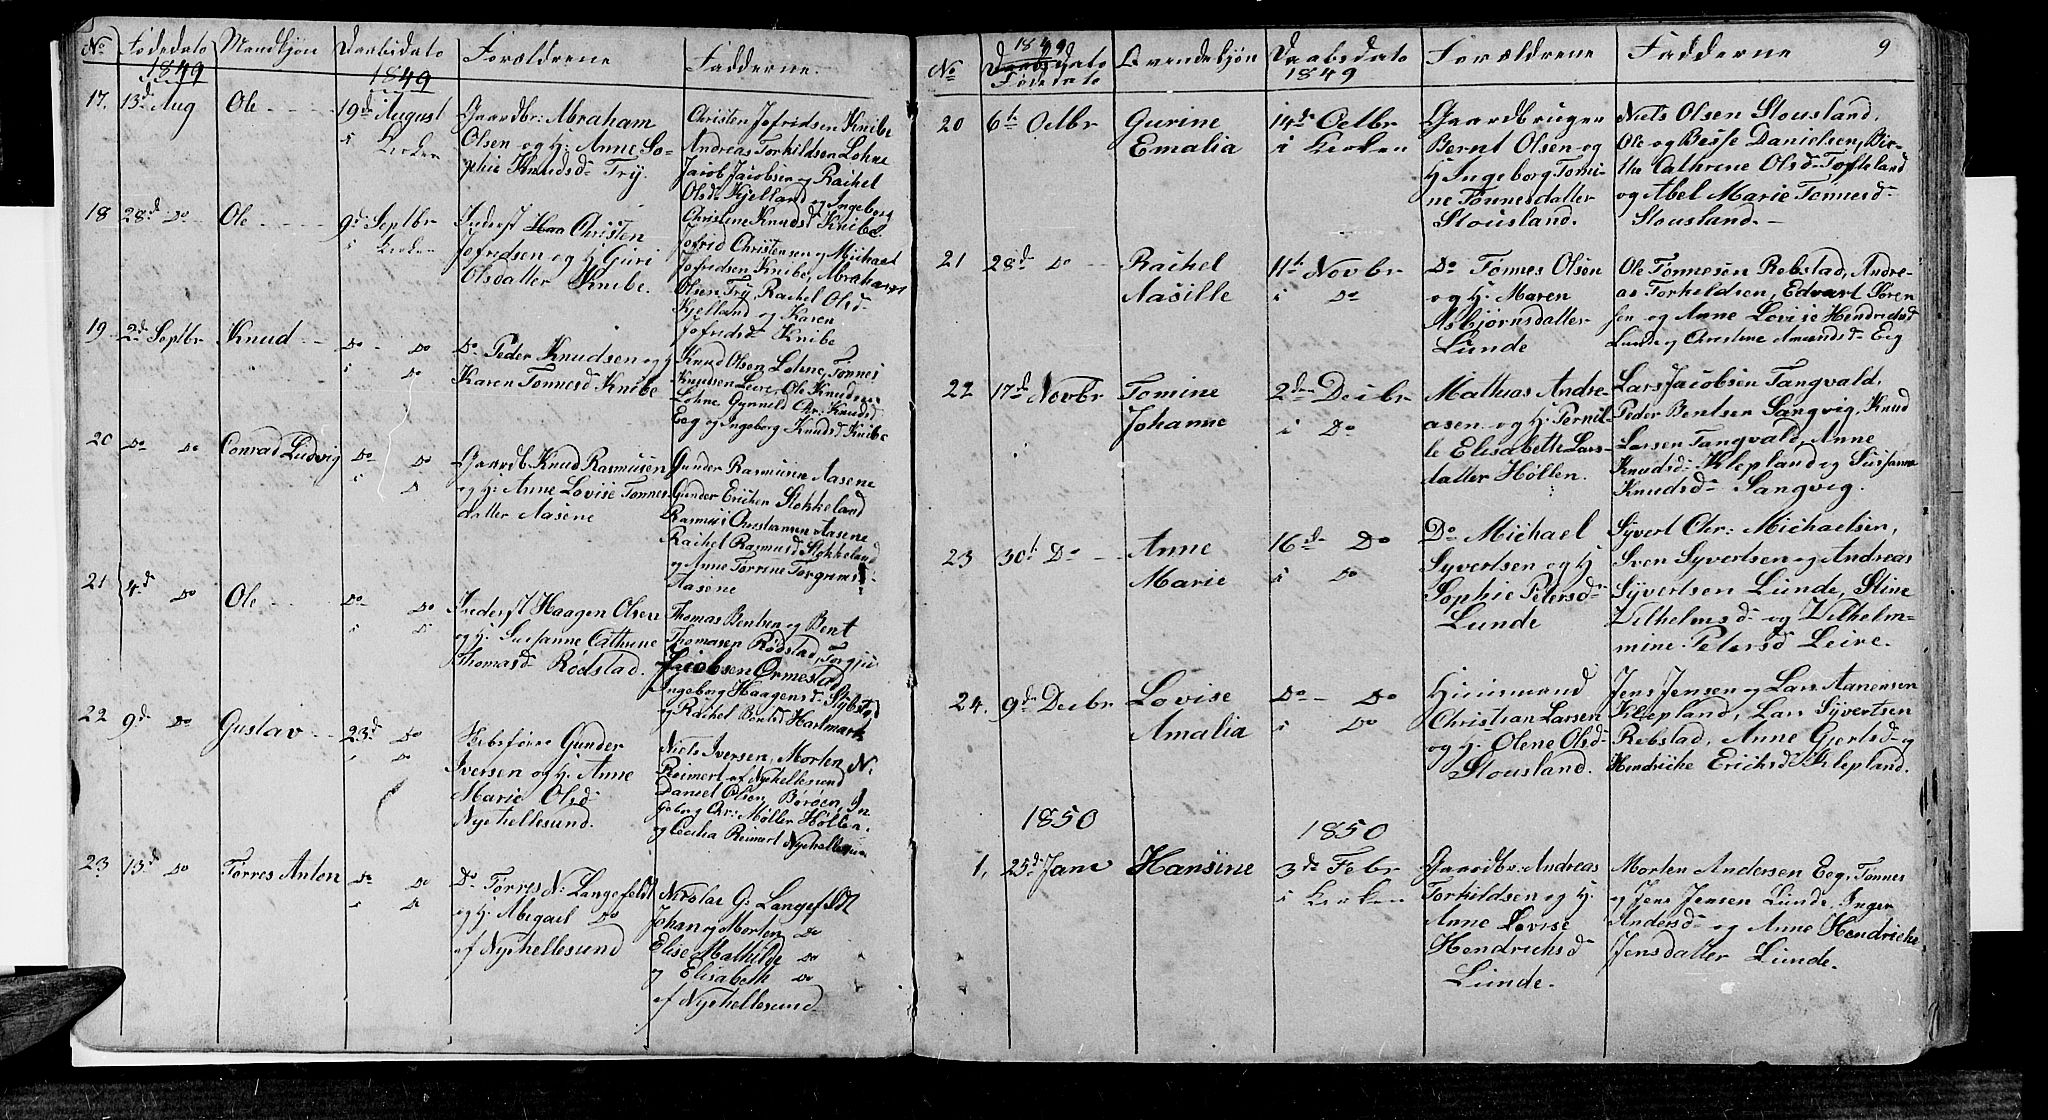 No Fødedato Mandkjøn Daabsdato Forældrene Fadderne
1849 1849
17. 13d Aug Ole 19de August Gaardbr: Abraham
i Kirken Olsen og H: Anne So-
phie Knudsd Try.
Christen Jofridsen Knibe
Andreas Torkildsen Lohne
Jacob Jacobsen og Rachel
Olsd Kjelland og Ingeborg
Christine Knudsd Knibe
18 28d Do Ole 9d Septbr Inderst Christen
i Kirken Jofridsen og H: Guri
Olsdatter Knibe.
Jofrid Christensen og Michael
Jofridsen Knibe, Abraham
Olsen Try, Rachel Olsd
Kjelland og Karen
Jofridsd Knibe
19 2d Septbr Knud Do Do Do Peder Knudsen og H
i Do Karen Tonnesd Knibe
Knud Olsen Lohne, Tønnes
Knudsen Leire, Ole Knudsen
Lohne Gunneld Chr: Knudsd
Eeg og Ingeborg Knudsd Knibe
20 Do Do Conrad Ludvig Do Do Gaardb Knud Rasmusen
i D og H: Anne Lovise Tønnes
datter Aasene
Gunder Rasmusen Aasene
Gunder Ericksen Stokkeland
Rasmus Christiansen Aasene
Rachel Rasmusd Stokkeland
og Anne Torrine Torgrimsd
Aasene
21 4d Do Ole Do Do Inderst Haagen Olsen
i D og H: Susanne Cathrine
Thomasd Rødstad.
Thomas Bentsen og Bent
Thomasen Rødstad, Torgju
Jacobsen Ormestad
Ingeborg Haagensd Stobstad
og Rachel Bentsd Hartmark
22 9d Do Gustav 23d Do Gunder
i Do Iversen og H: Anne
Marie Olsd
Nyehellesund.
Niels Iversen, Morten N.
Reimert af Nyehellesund
Daniel Olsen Børøen, In
geborg Chr: Møller Høllen,
og Cecilia Reimert Nyehellesun
23 13d Do Tørres Anton Do Do Do Tørres N: Langefeldt
i Do og H: Abigael Do
af Nyehellesund
Nicolai G: Langefeldt
Johan og Morten Do
Elise Mathilde Do
og Elisabeth Do
af Nyehellesund
9
No 1849 Daabsdato Fødedato Qvindekjøn Daabsdato 1849 Forældrene Fadderne
20 6te Octbr Gurine 14de Octbr Gaardbruger
Emalia i Kirken Bernt Olsen og
H Ingeborg Tomi-
ne Tønnesdatter
Stousland.
Niels Olsen Stousland,
Ole og Besse Danielsen, Bir-
the Cathrine Olsd Tofteland
og Abel Marie Tønnesd
Stousland.
21 28d Do Rachel 11te Novbr Do Tønnes Olsen
Aasille i Do og H: Maren
Asbjørnsdatter
Lunde
Ole Tønnesen Rebstad, Andre-
as Torkeldsen, Edvart Søren
sen og Anne Lovise Hendrichsd
Lunde og Christine Amundsd Eeg
22 17d Novbr Tomine 2den Decbr Mathias Andre-
Johanne i Do asen og H: Pernil-
le Elisabeth Lars-
datter Høllen.
Lars Jacobsen Tangvald,
Peder Bentsen Sangvig, Knud
Larsen Tangvald, Anne
Knudsd Klepland og Susanne
Knudsd Sangvig.
23 30t Do Anne 16de Do Do Michael
Marie i Do Syvertsen og H
Sophie Petersd
Lunde
Syvert Chr: Michaelsen,
Sven Syvertsen og Andreas
Syvertsen Lunde, Stine
Vilhelmsd og Vilhelm-
mine Petersd Leire.
24. 9de Decbr Lovise Do Do Huusmand
Amalia i Do Christian Larsen
og H. Olene Olsd
Stousland.
Jens Jensen og Lars Aanensen
Klepland, Lars Syvertsen
Rebstad, Anne Gjertsd og
Hendrikke Ericksd Klepland.
1850 1850
1, 25de Janr Hansine 3de Febr Gaardbr: Andreas
i Kirken Torkildsen og H.
Anne Lovise
Hendrichsd
Lunde.
Morten Andersen Eeg, Tønnes
og Jens Jensen Lunde, Inger
Andersd og Anne Hendrikke
Jensdatter Lunde.